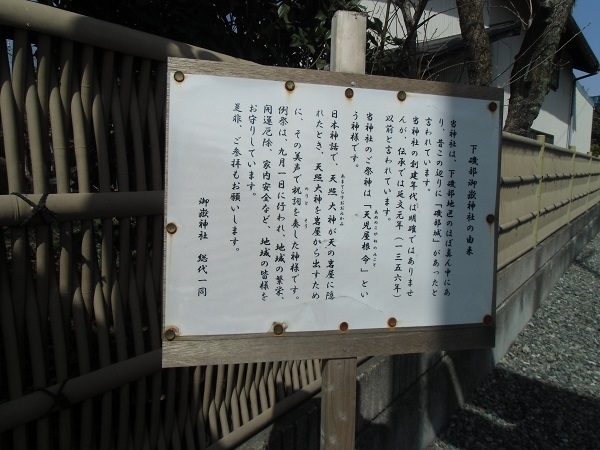 下磯部御嶽神社の由来
当神社は、下磯部地区のほぼ真ん中にあ
り、昔この辺りに「磯部城」があったと
言われています。
当神社の創建年代は明確ではありませ
んが、伝承では延文元年（一三五六年）
以前と言われています。
当神社のご祭神は「天児屋根命」とい
う神様です。
日本神話で、天照大神が天の岩屋に隠
れたとき、天照大神を岩屋から出すため
に、その美声で祝詞を奏した神様です。
例祭は、九月一日に行われ、地域の繁栄、
開運厄除、家内安全など、地域の皆様を
お守りしています。
是非、ご参拝もお願いします。
御嶽神社　総代一同